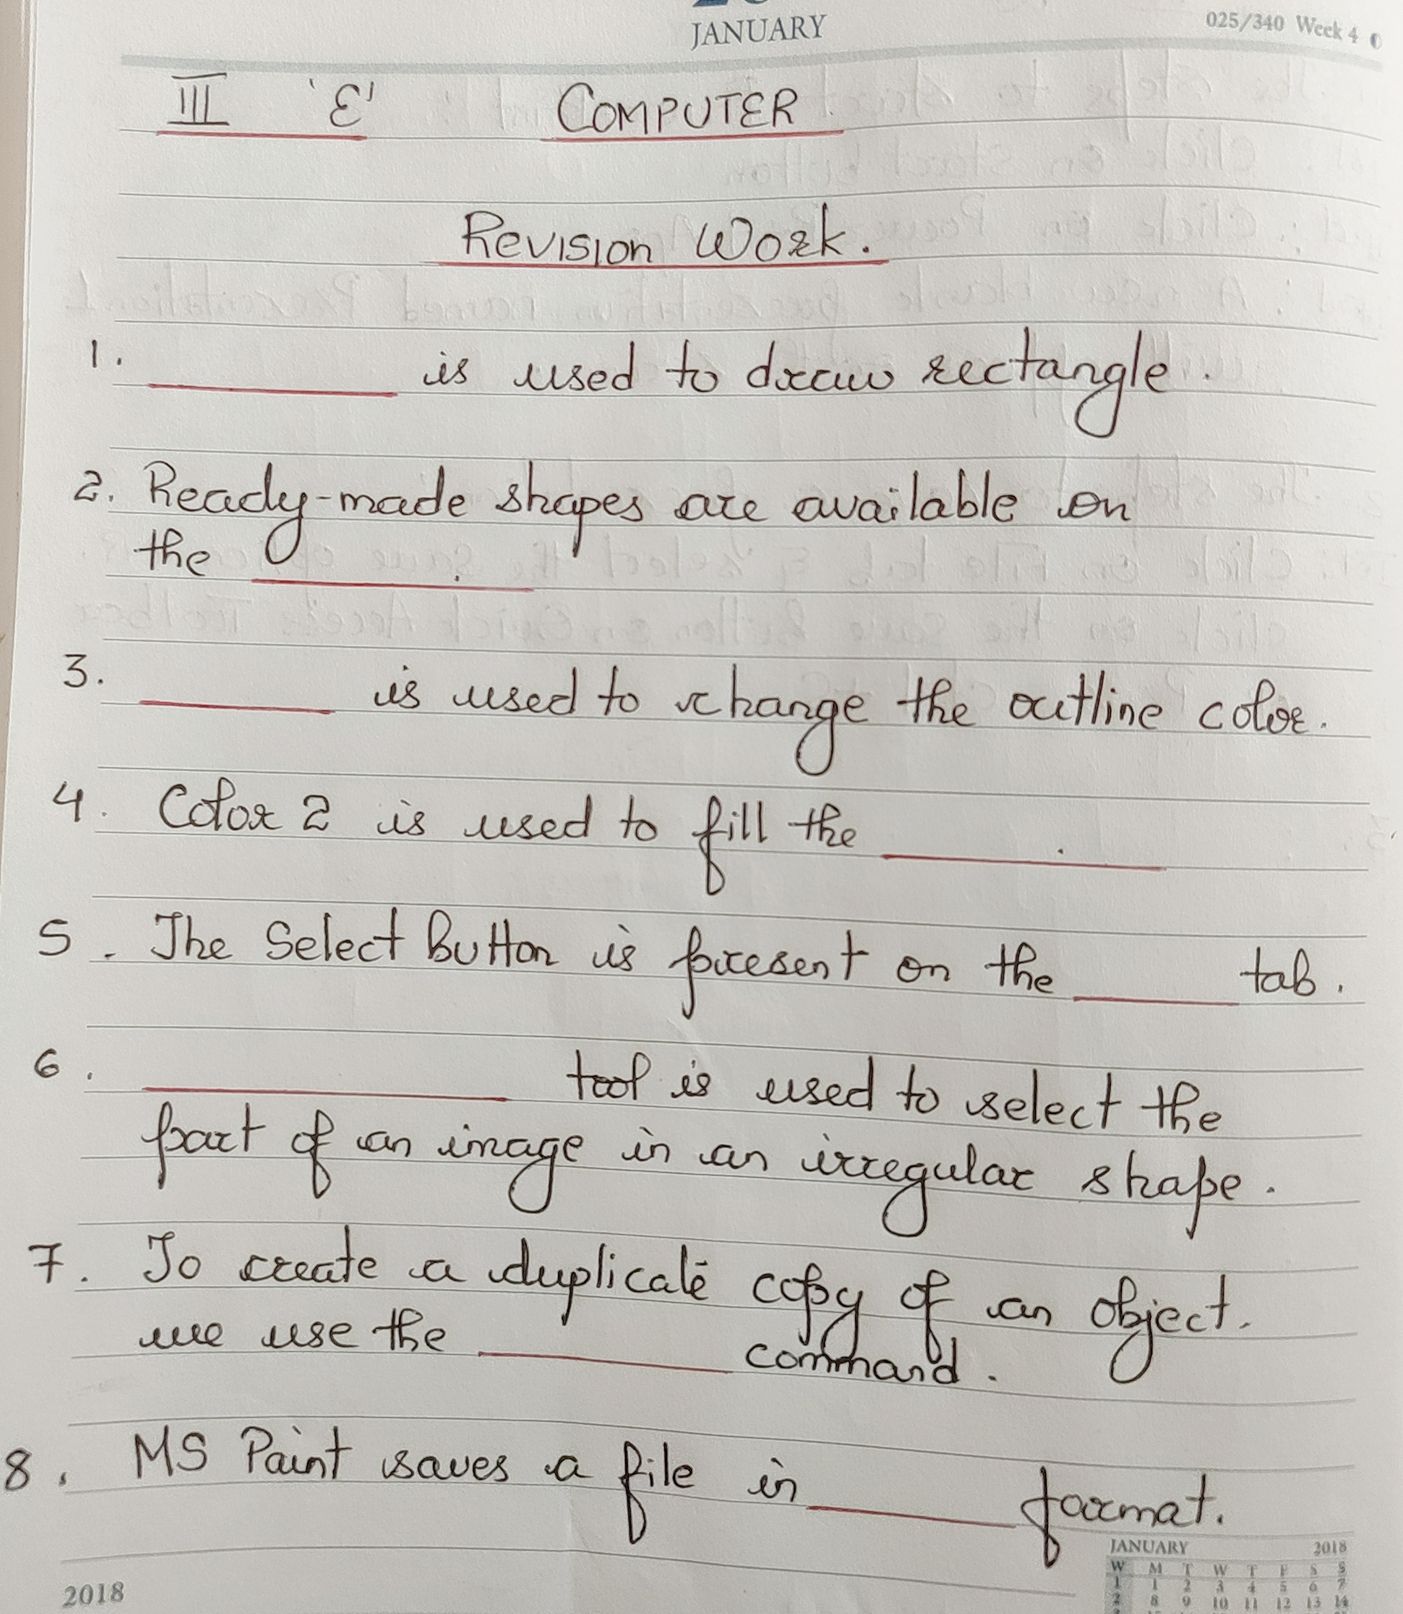 JANUARY
025/340 Week 4
III 'E' COMPUTER
Revision Work.
1. ______ is used to draw rectangle.
2. Ready-made shapes are available on
the ______.
3. ______ is used to change the outline color.
4. Color 2 is used to fill the ______.
5. The Select Button is present on the ______ tab.
6. ______ tool is used to select the
part of an image in an irregular shape.
7. To create a duplicate copy of an object.
we use the ______ command.
8. MS Paint saves a file in ______ format.
JANUARY 2018
W M T W T F S S
1 1 2 3 4 5 6 7
2 8 9 10 11 12 13 14
2018